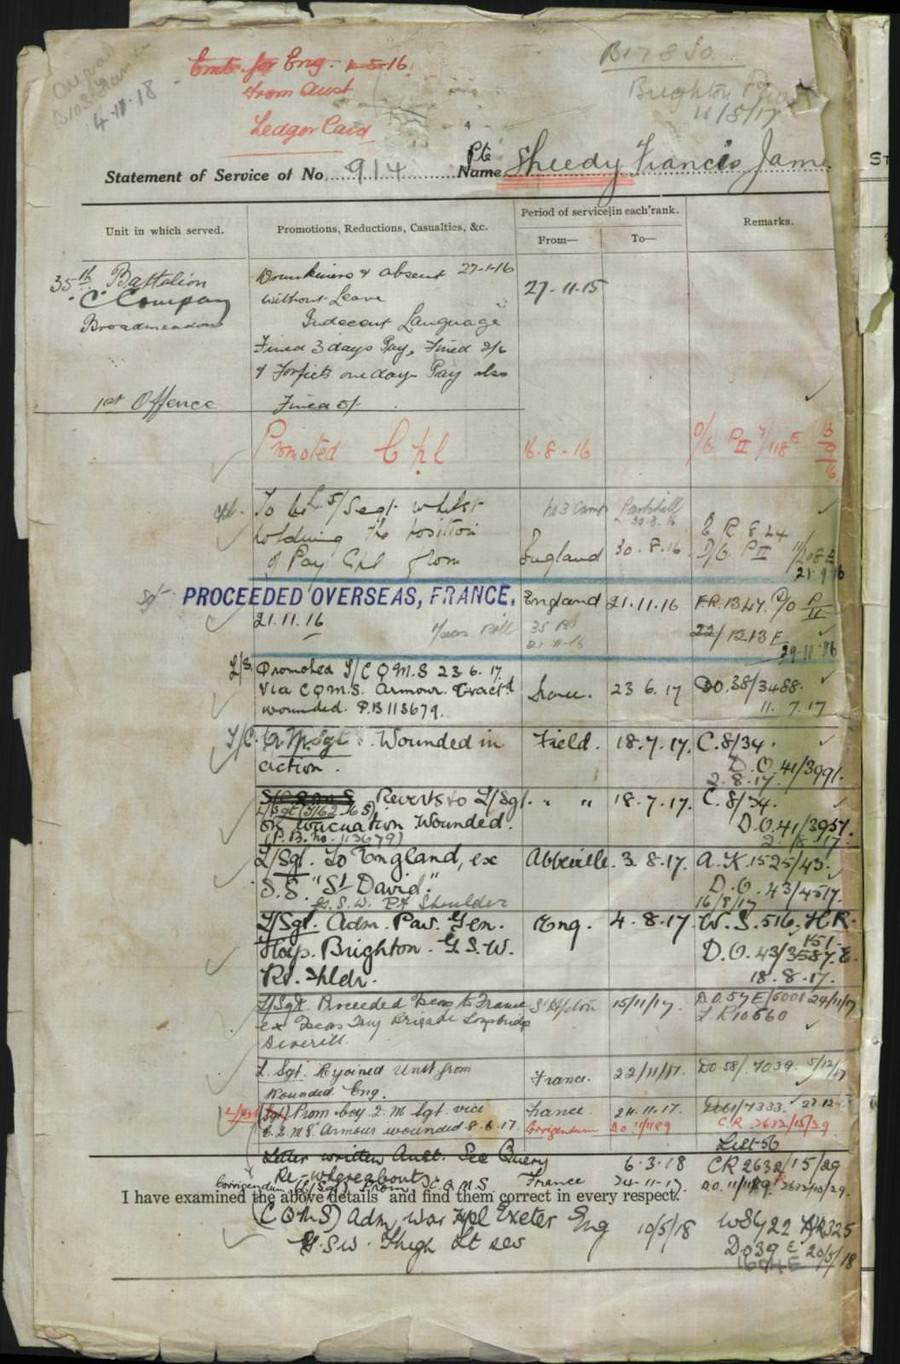 Emb. for Eng. 1-5-16
from Aust
Ledger Card
B178 So.
Brighton
11/8/17
4-11-18
4
Statement of Service of No. 914 Pte Name Sheedy Francis Jam
Unit in which served.
Promotions, Reductions, Casualties, &c.
Period of service in each rank.
From—
To—
Remarks.
35th Battalion
"C" Company
Broadmeadows
Drunkiness & absent 27-1-16
without Leave
Indecent Language
Fined 3 days Pay, Fined 2/6
& Forfeits one days Pay also
1st Offence
Fined 5/
27-11-15
Promoted Cpl
16-8-16
13/9/16
Cpl.
To be L/Segt whilst
holding the position
of Pay Cpl from
No 3 Camp Parkhill
30.8.16
England
30.8.16
E R 8 24
D/O. PII
21-9-16
Sgt
PROCEEDED OVERSEAS, FRANCE.
21.11.16
England
21.11.16
35 Bn
21-11-16
FR.1347. P/O P/II
22/1213 E
29-11-16
L/S.
Promoted T/C Q M.S 23 6.17
Via C Q M.S. Armour Evact'd
wounded. P.B 113679.
France.
23 6.17
DO.38/3488.
11. 7. 17
T/C.
Q M Sgt. Wounded in
action.
Field.
18.7.17.
C.8/34.
D.O. 41/3991.
2.8.17.
Reverts to L/Sgt.
on evacuation Wounded.
(P.B. no. 113679)
" "
18.7.17.
C.8/34.
D.O.41/3957.
L/Sgt. To England, ex
S.S. "St David."
G.S.W. Rt Shoulder
Abbeville.
3.8.17.
A.K.1525/43.
D.O. 43/4517.
16/8/17
L/Sgt. Adm. Pav. Gen.
Hosp. Brighton. G.S.W.
Rt. Shldr.
Eng.
4.8.17.
W.S.516. H.R.
151.
D.O. 43/3587.E.
18.8.17.
L/Sgt. Proceeded O'seas to France
ex O'seas Trng Brigade Longbridge
Deverill.
S'Hpton
15/11/17
D.O 57E/6001 24/11/17
L.R10660
L. Sgt. Rejoined Unit from
Wounded Eng.
France.
22/11/17.
DO 58/.7039. 5/12/17
Prom Coy 2. M Sgt. vice
C.2.M.S. Armour wounded 8.6.17.
France
24.11.17.
Corrigendum
DO 11/1189
CR 2632/15/29
List 56
Later written Aust. See Query
Re. whereabouts
6.3.18
CR 2632/15/29
Corrigendum
C.Q.M.S.
France
24-11-17
DO.11/1189.
I have examined the above details and find them correct in every respect.
(CQMS) Adm War Hpl Exeter
G.S.W. Thigh Lt sev
Eng
10/5/18
WS422
Do39 E 20/5/18